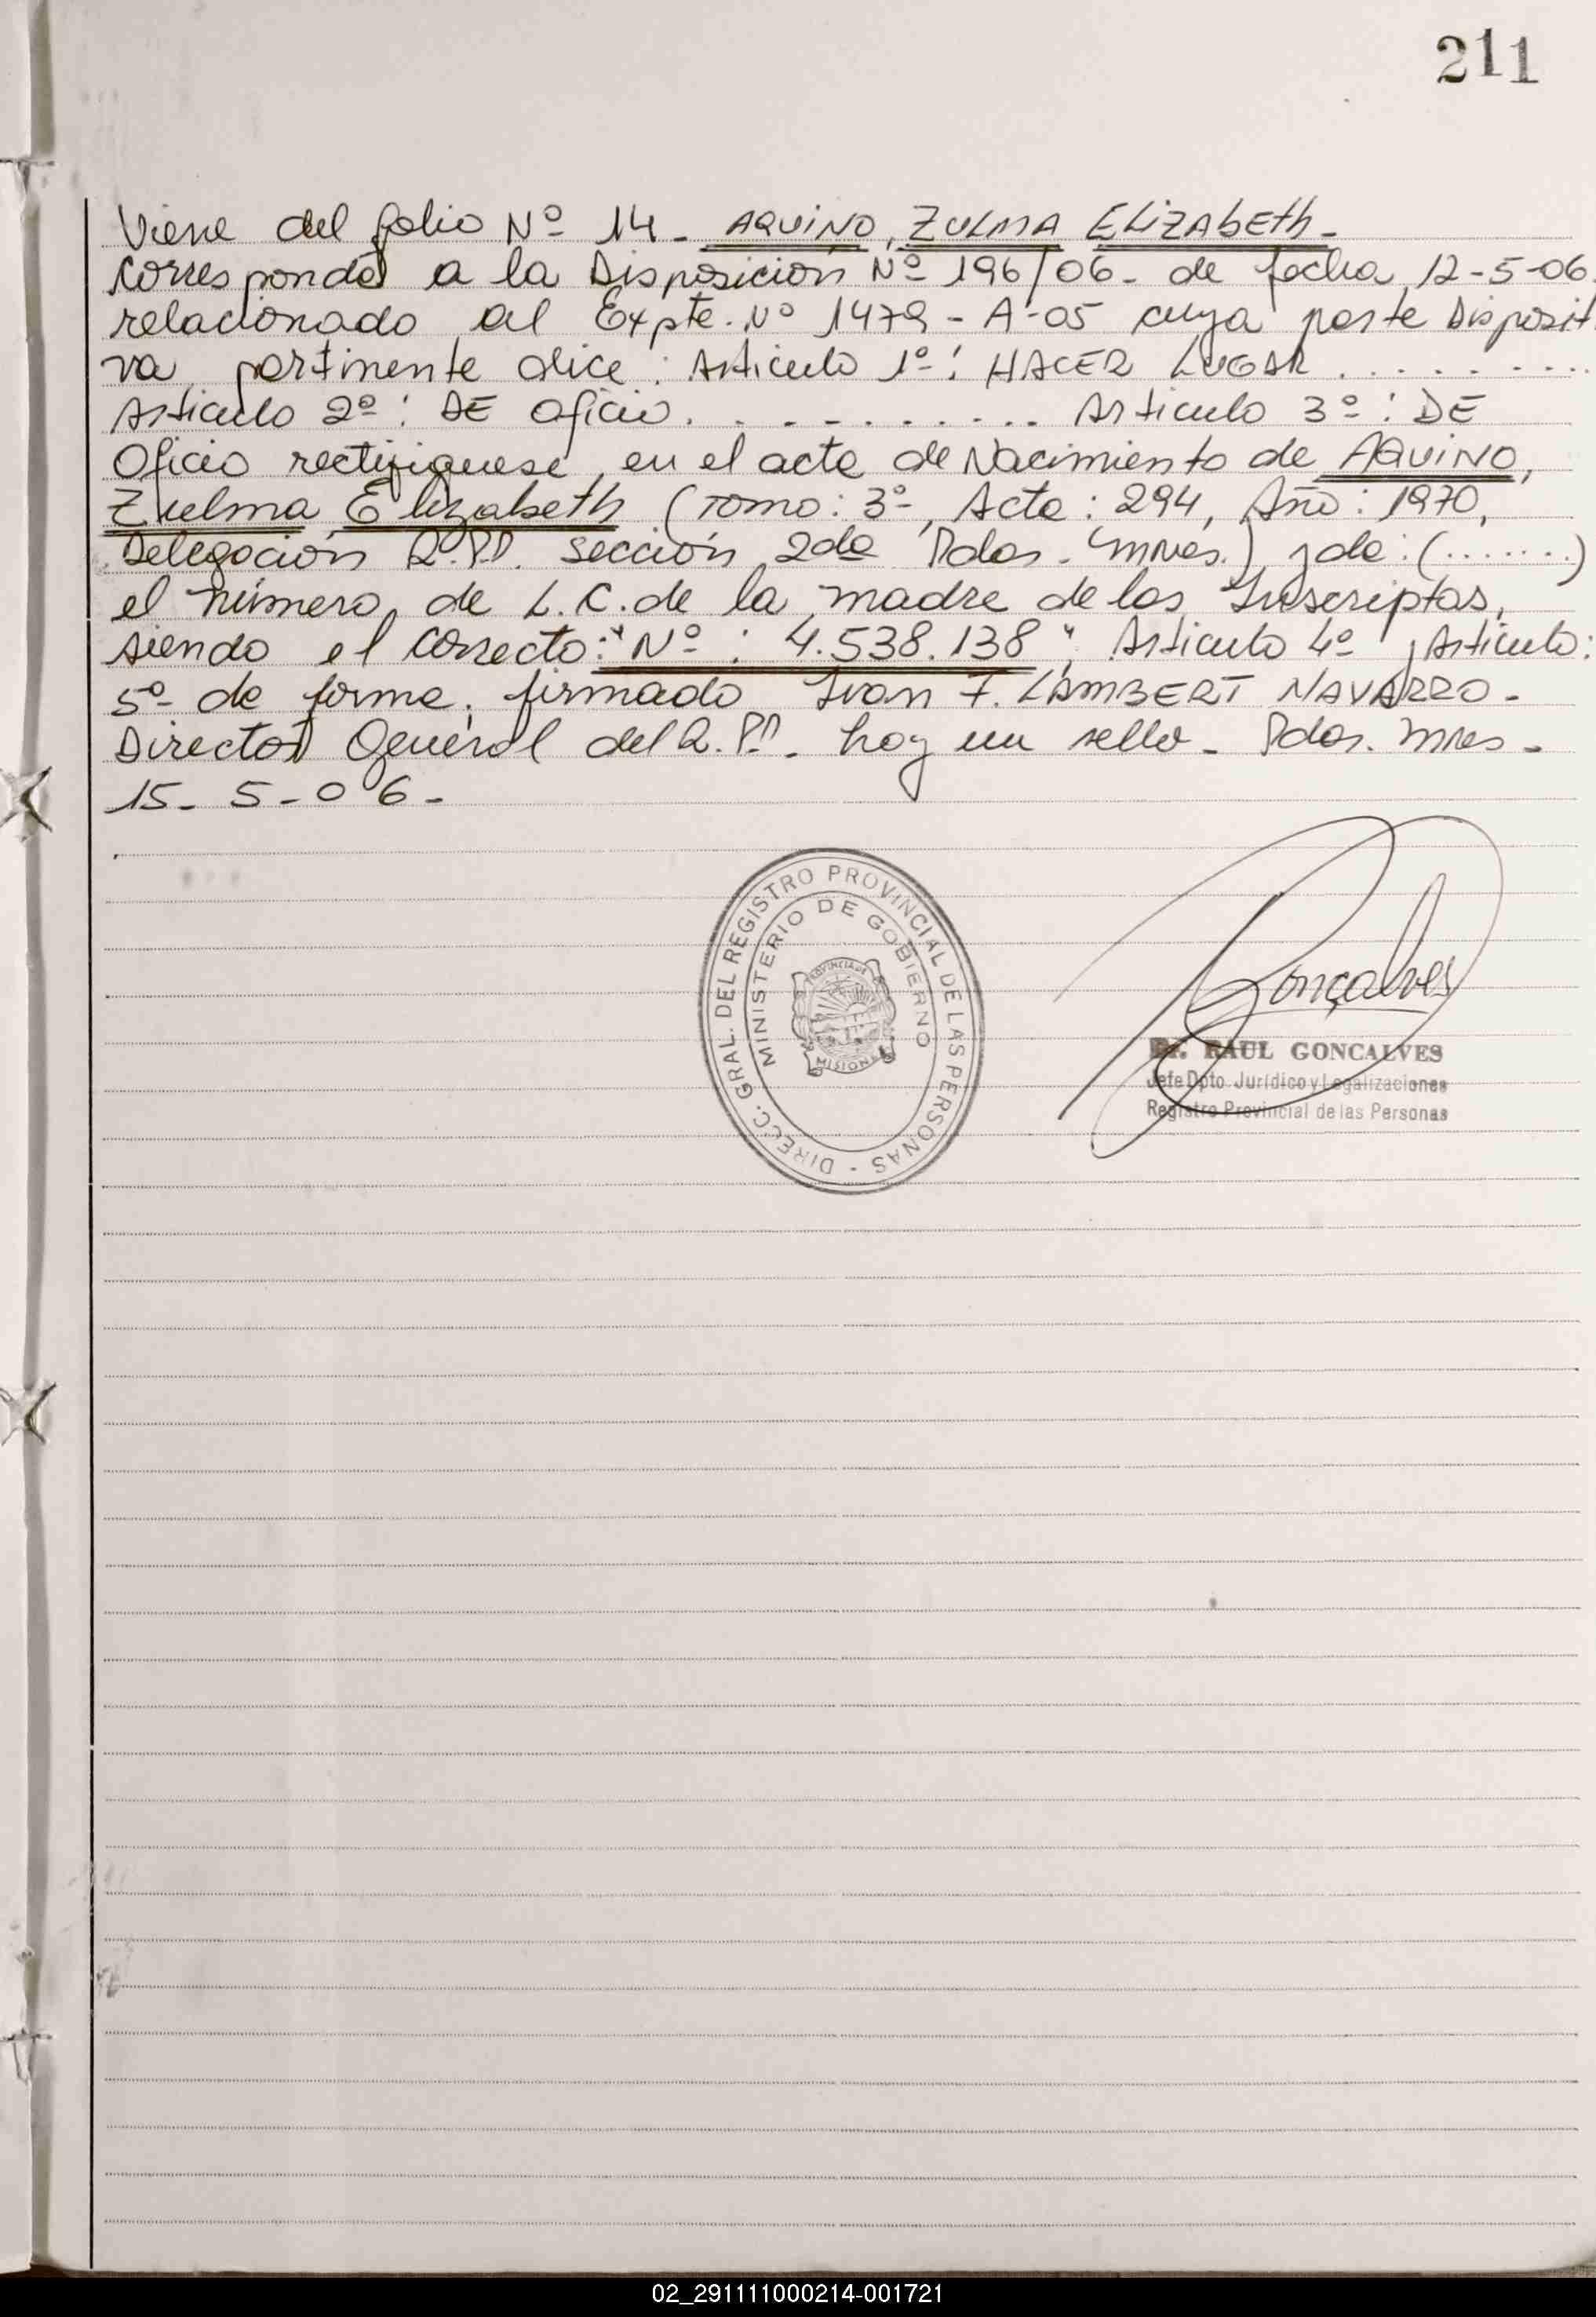 211
Viene del folio Nº 14 - AQUINO, ZULMA ELIZABEth -
Corresponde a la Disposicion Nº 196/06 - de fecha 12-5-06.
relacionado al Expte. Nº 1479 - A - 05 cuya parte Disposit
va pertinente dice: Articulo 1º: HACER LUGAR . . . . . . . . .
Articulo 2º: DE oficio. . . . . . . . . . . Articulo 3º: DE
Oficio rectifiquese en el acta de Nacimiento de AQUINO,
Zulma Elizabeth (Tomo: 3º, Acta: 294, Año: 1970,
Delegación R.P.P. Sección 2da Pdas. Mnes.) y de: (.......)
el número de L.C. de la madre de las Inscriptas,
siendo el correcto: "Nº: 4.538.138", Articulo 4º y Articulo:
5º de forma. firmado Ivan F. LAMBERT NAVARRO -
Director General del R.P.P. - hay un sello - Pdas. Mnes -
15 - 5 - 06 -
DIRECC. GRAL. DEL REGISTRO PROVINCIAL DE LAS PERSONAS -
MINISTERIO DE GOBIERNO
PROVINCIA DE
MISIONES
Gonçalves
Dr. RAUL GONCALVES
Jefe Dpto Jurídico y Legalizaciones
Registro Provincial de las Personas
02_291111000214-001721